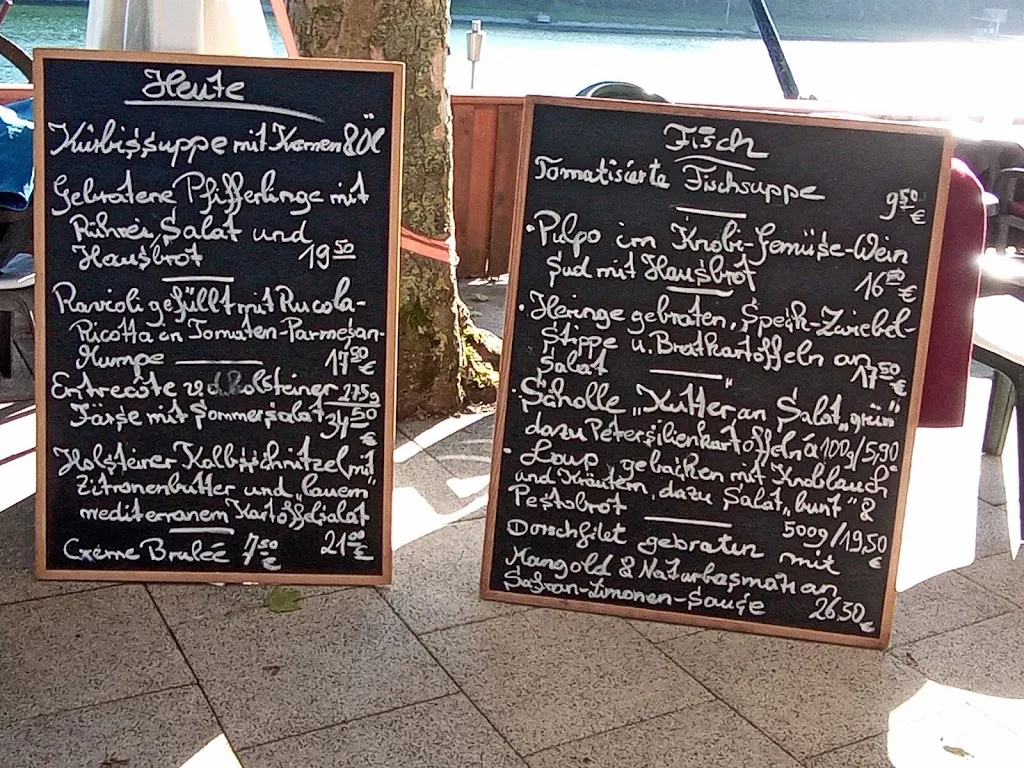 Heute
Kürbissuppe mit Kernen & Öl
Gebratene Pfifferlinge mit
Rührei, Salat und
Hausbrot 19 50
Ravioli gefüllt mit Rucola-
Ricotta in Tomaten-Parmesan-
17 50
Entrecôte Holsteiner 275g
Färse mit Sommersalat 34 50 €
Holsteiner Kalbsschnitzel mit
Zitronenbutter und "lauem"
mediterranem Kartoffelsalat
Crème Brulée 7 50 € 21 00 €
Fisch
Tomatisierte Fischsuppe
9 50 €
• Pulpo im Knobi-Gemüse-Wein
Sud mit Hausbrot 16 €
• Heringe gebraten, Speck-Zwiebel-
Stippe u. Bratkartoffeln an
Salat 17 50 €
• Scholle "Kutter an Salat "grün"
dazu Petersilienkartoffeln á 100g/5,90
• Loup gebacken mit Knoblauch
und Kräutern, dazu Salat "bunt" &
Pestobrot 500g/19,50 €
Dorschfilet gebraten mit
Mangold & Naturbasmati an
Safran-Limonen-Sauce 26,50 €